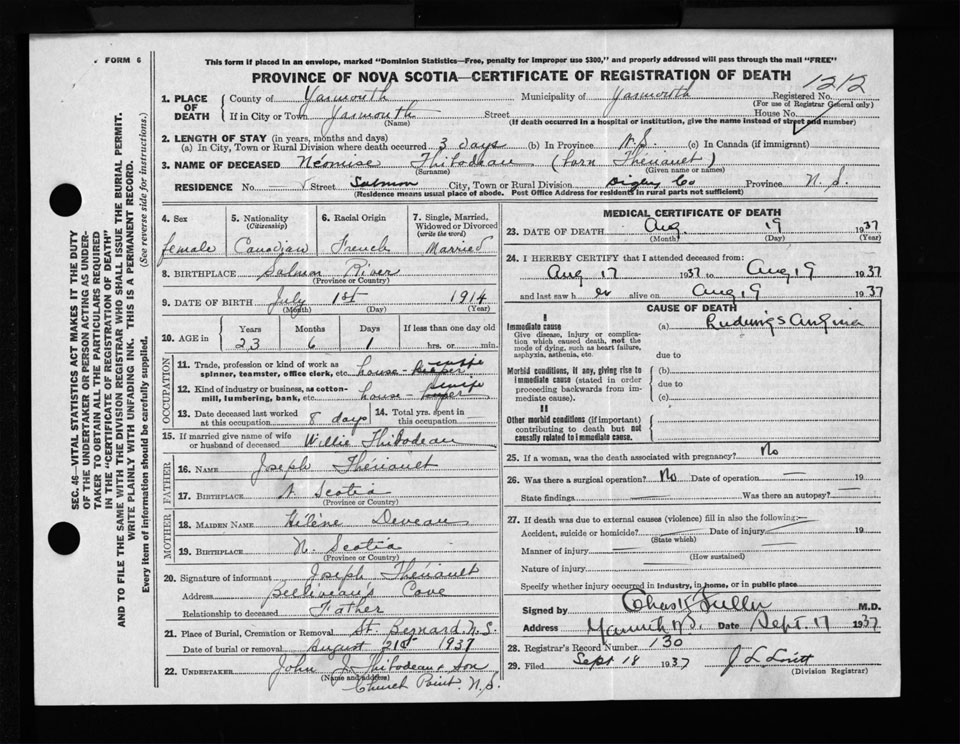 FORM 6
This form if placed in an envelope, marked "Dominion Statistics—Free, penalty for improper use $300," and properly addressed will pass through the mail "FREE"
PROVINCE OF NOVA SCOTIA—CERTIFICATE OF REGISTRATION OF DEATH
1212
1. PLACE OF DEATH
County of Yarmouth Municipality of Yarmouth Registered No.
(For use of Registrar General only)
If in City or Town Yarmouth Street House No.
(Name) (If death occurred in a hospital or institution, give the name instead of street and number)
2. LENGTH OF STAY (in years, months and days)
(a) In City, Town or Rural Division where death occurred 3 days (b) In Province N.S. (c) In Canada (if immigrant)
3. NAME OF DECEASED Néomise Thibodeau (born Thériault)
(Surname) (Given name or names)
RESIDENCE No. — Street Salmon City, Town or Rural Division Digby Co Province N. S.
(Residence means usual place of abode. Post Office Address for residents in rural parts not sufficient)
4. Sex female
5. Nationality (Citizenship) Canadian
6. Racial Origin French
7. Single, Married, Widowed or Divorced (write the word) Married
8. BIRTHPLACE Salmon River
(Province or Country)
9. DATE OF BIRTH July 1st 1914
(Month) (Day) (Year)
10. AGE in Years Months Days If less than one day old
23 6 1 hrs. or min.
OCCUPATION
11. Trade, profession or kind of work as spinner, teamster, office clerk, etc. house-keeper wife
12. Kind of industry or business, as cotton-mill, lumbering, bank, etc. house- wife
13. Date deceased last worked at this occupation 8 days
14. Total yrs. spent in this occupation
15. If married give name of wife or husband of deceased Willie Thibodeau
FATHER
16. NAME Joseph Thériault
17. BIRTHPLACE N. Scotia
(Province or Country)
MOTHER
18. MAIDEN NAME Hélène Deveau
19. BIRTHPLACE N. Scotia
(Province or Country)
20. Signature of informant Joseph Thériault
Address Belliveau's Cove
Relationship to deceased Father
21. Place of Burial, Cremation or Removal St. Bernard N.S.
Date of burial or removal August 21st 1937
22. UNDERTAKER John J. Thibodeau & Son
(Name and address)
Church Point. N.S.
MEDICAL CERTIFICATE OF DEATH
23. DATE OF DEATH Aug 19 1937
(Month) (Day) (Year)
24. I HEREBY CERTIFY that I attended deceased from:
Aug 17 1937 to Aug 19 1937
and last saw h er alive on Aug 19 1937
CAUSE OF DEATH
I
Immediate cause (a) Ludwig's Angina
Give disease, injury or complication which caused death, not the mode of dying, such as heart failure, asphyxia, asthenia, etc.
due to
Morbid conditions, if any, giving rise to immediate cause (stated in order proceeding backwards from immediate cause).
(b)
due to
(c)
II
Other morbid conditions (if important) contributing to death but not causally related to immediate cause.
25. If a woman, was the death associated with pregnancy? No
26. Was there a surgical operation? No Date of operation — 19
State findings Was there an autopsy? —
27. If death was due to external causes (violence) fill in also the following:—
Accident, suicide or homicide? Date of injury 19
(State which)
Manner of injury
(How sustained)
Nature of injury
Specify whether injury occurred in industry, in home, or in public place
Signed by Chas K Fuller M.D.
Address Yarmouth N.S. Date Sept. 17 1937
28. Registrar's Record Number 130
29. Filed Sept 18 1937 J L Lovitt
(Division Registrar)
SEC. 46—VITAL STATISTICS ACT MAKES IT THE DUTY
OF THE UNDERTAKER OR PERSON ACTING AS UNDERTAKER TO OBTAIN ALL THE PARTICULARS REQUIRED
IN THE "CERTIFICATE OF REGISTRATION OF DEATH"
AND TO FILE THE SAME WITH THE DIVISION REGISTRAR WHO SHALL ISSUE THE BURIAL PERMIT.
WRITE PLAINLY WITH UNFADING INK. THIS IS A PERMANENT RECORD.
Every item of information should be carefully supplied. (See reverse side for instructions.)